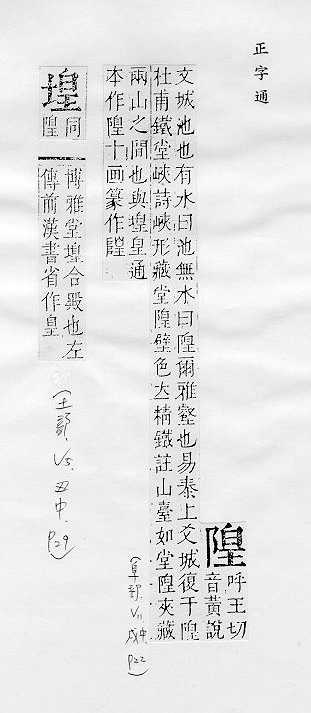 正字通
隍
呼王切
音黃說
文城池也有水曰池無水曰隍爾雅壑也易泰上爻城復于隍
杜甫鐵堂峽詩峽形藏堂隍壁色立精鐵註山臺如堂隍夾藏
兩山之間也與堭皇通
本作隍十画篆作
(阜部, V11 戌中, P22)
堭
同
隍
博雅堂堭合殿也左
傳前漢書省作皇
(土部, V5. 丑中. P29)